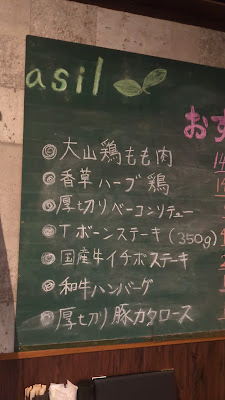 asil
おす
◎大山鶏もも肉
◎香草ハーブ鶏
◎厚切りベーコンソテュー
◎Tボーンステーキ(350g)
◎国産牛イチボステーキ
◎和牛ハンバーグ
◎厚切り豚カタロース